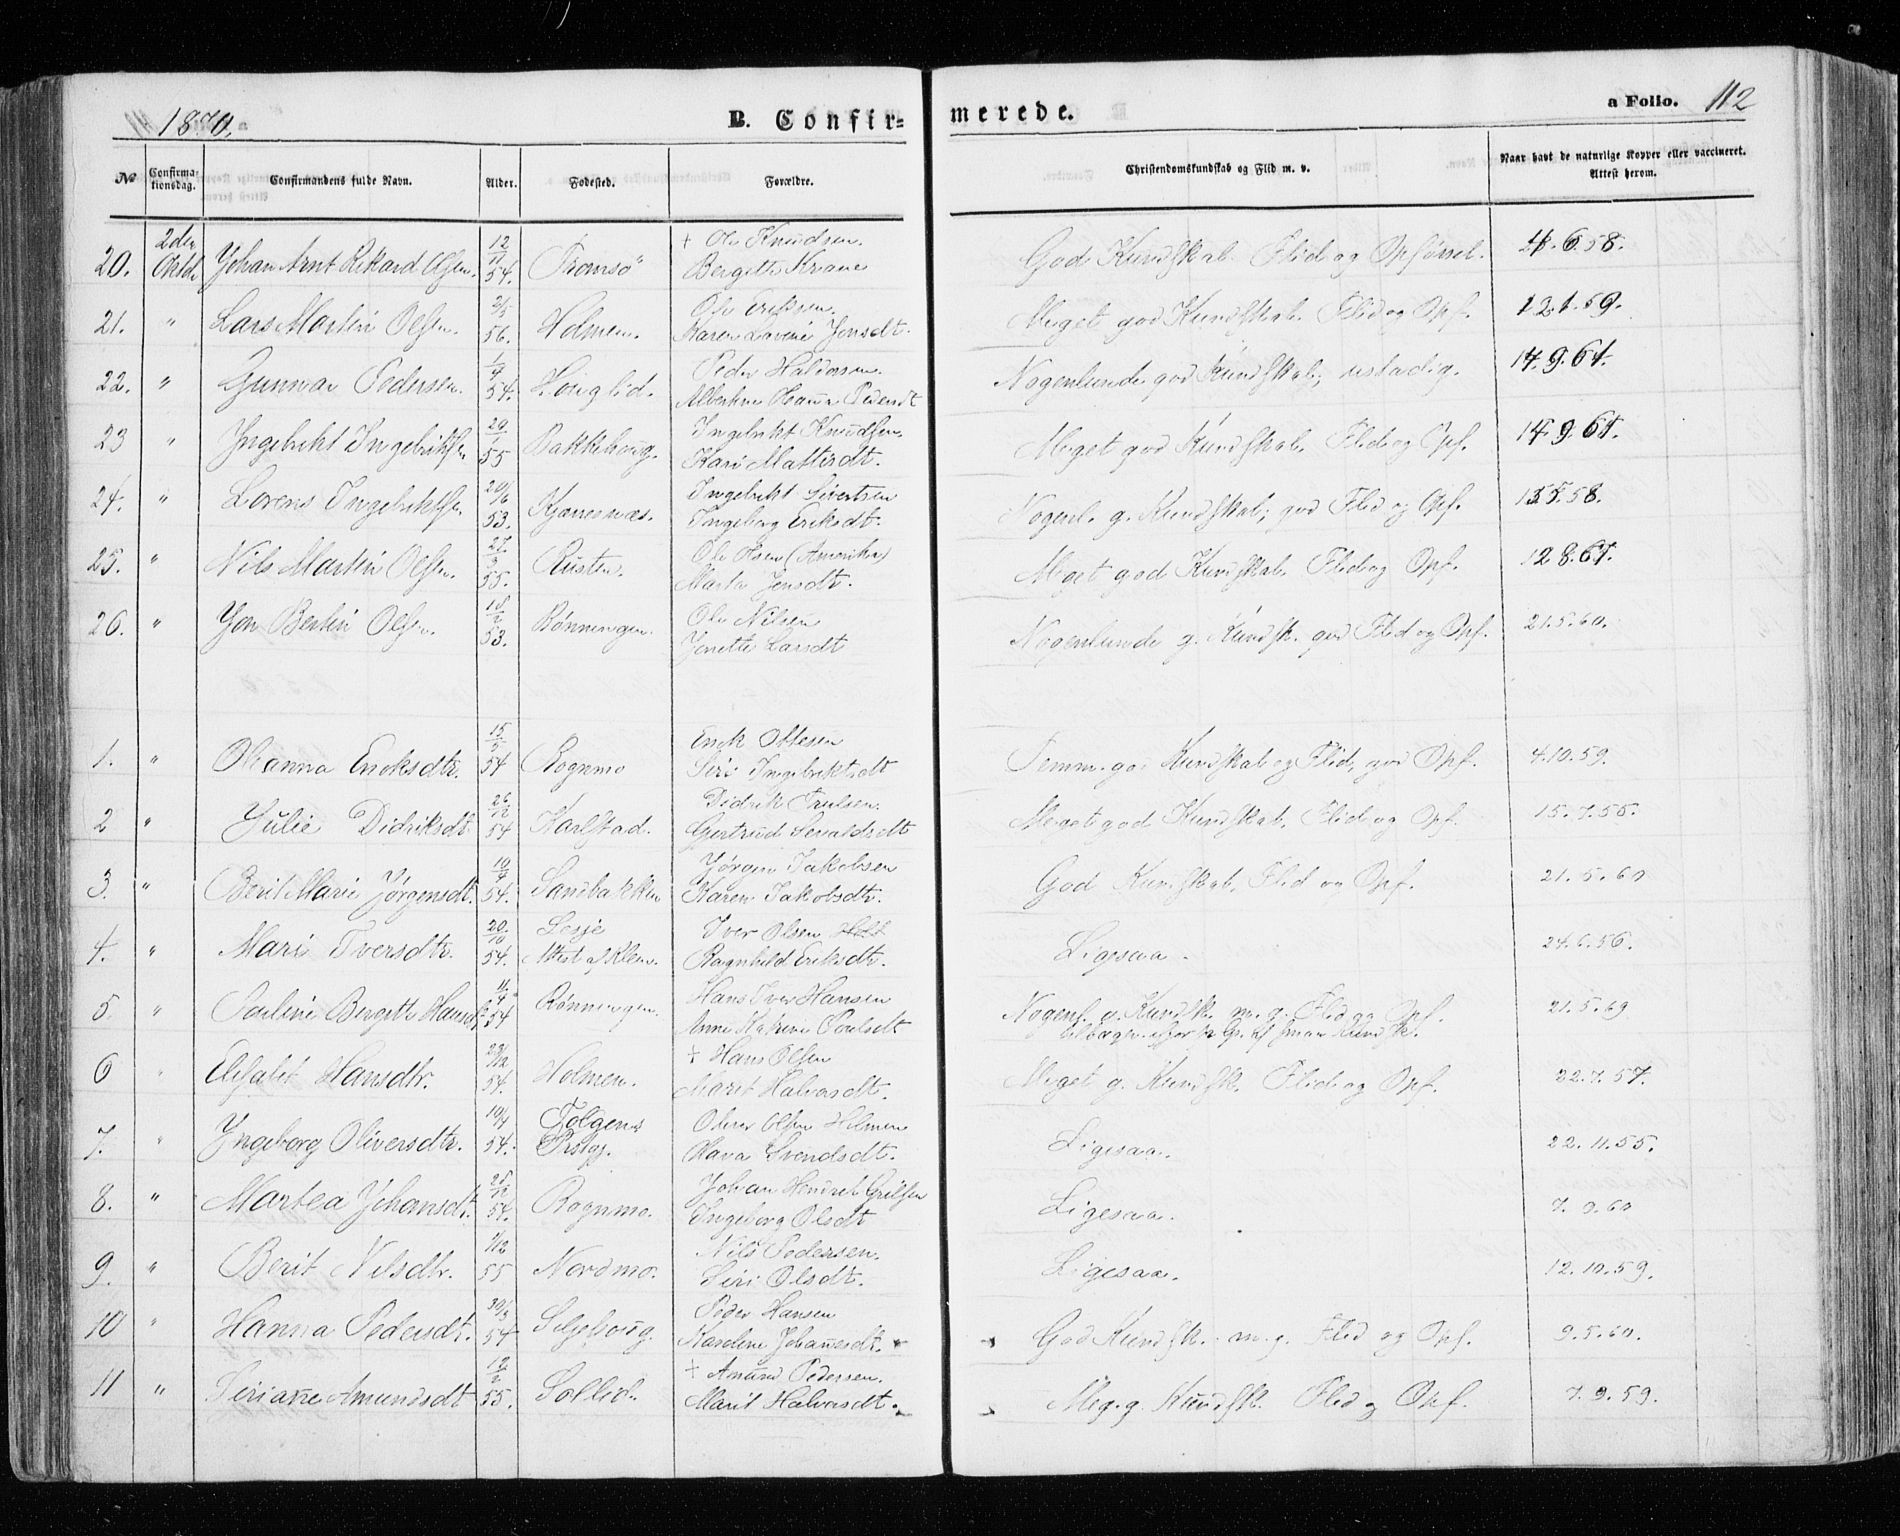 1870. B. Confirmerede. a Folio. 112
No Confirmationsdag. Confirmandens fulde Navn. Alder. Fødested. Forældre. Christendomskundskab og Flid m. v. Naar havt de naturlige Kopper eller vaccineret. Attest herom.
20. 2den Oktbr Johan Arnt Rikard Olsen. 12/11 54. Tromsö + Ole Knudsen. Bergitte Kvane God Kundskab. Flid og Opförsel. 4.6.58.
21. " Lars Martin Olsen. 2/5 56. Holmen. Ole Eriksen. Karen Lovine Jensdt. Meget god Kundskab. Flid og Opf. 12.1.59.
22. " Gunnar Pedersen. 54. Houglid. Peder Haldosen. Albertine Hansdt Nogenlunde god Kundskab; ustadig. 14.9.61.
23 " Ingebrikt Ingebriktsen 20/1 55 Bakkehoug. Ingebrikt Knudsen. Kari Mattisdt. Meget god Kundskab. Flid og Opf. 14.9.61.
24. " Lorens Ingebriktsen 20/6 53. Kjønesnæs. Ingebrikt Sivertsen Ingeborg Eriksdt. Nogenl. g. Kundskab; god Flid og Opf. 58.
25. " Nils Martin Olsen. 55. Rusten. Ole Olsen (Amerika) Marta Jensdt. Meget god Kundskab. Flid og Opf. 12.8.61.
26. " Jon Bertin Olsen. 18/2 53. Rønningen. Ole Nilsen Jonette Larsdt Nogenlunde g. Kundsk. god Flid og Opf. 21.5.60.
1. " Olianna Eriksdtr. 15/5 54 Rognmo Erik Ottesen Siri Ingebriktsdt Temm. god Kundskab og Flid, god Opf. 4.10.59.
2 " Julie Didriksdt 26/12 54 Karlstad. Didrik Trulsen. Gertrud Meget god Kundskab. Flid og Opf. 15.7.55.
3. " Berit Marie Jørgensdt. 10/9 54. Sandbakken Jørgen Jakobsen Karen Jakobsdtr. God Kundskab, Flid og Opf. 21.5.60
4. " Mari Iversdtr. 20/10 54. Lesje Attest af Klem. Iver Olsen Holt Ragnhild Eriksdtr. Ligesaa. 24.6.56.
5 " Pauline Bergitte Hansdt. 11/4 54 Rønningen. Hans Iver Hansen Anne Katrine Poulsdt Nogenl. g. Kundsk. m. g. Flid og Opf. 21.5.69
6 " Elisabet Hansdtr. 29/12 54. Holmen. + Hans Olsen Marit Halvorsdt. Meget g. Kundsk. Flid og Opf. 22.7.57.
7. " Ingeborg Oliversdtr. 10/4 54. Tolgens Prstgj. Oliver Olsen Holmen Hava Svendsdt. Ligesaa. 22.11.55.
8. " Martea Johansdt. 25/12 54. Rognmo. Johan Hendrik Grilsen Ingeborg Olsdt Ligesaa. 7.9.60
9. " Berit Nilsdtr. 1/12 55 Nordmo. Nils Pedersen. Siri Olsdt. Ligesaa. 12.10.59.
10 " Hanna Pedersdt. 30/3 54 Seljehoug. Peder Hansen Karoline Johannesdt. God Kundsk. m. g. Flid og Opf. 9.5.60.
11 " Amundsdt 12/2 55. Sollid. + Amund Pedersen. Marit Halvorsdt. Meg. g. Kundsk. Flid og Opf. 7.9.59.